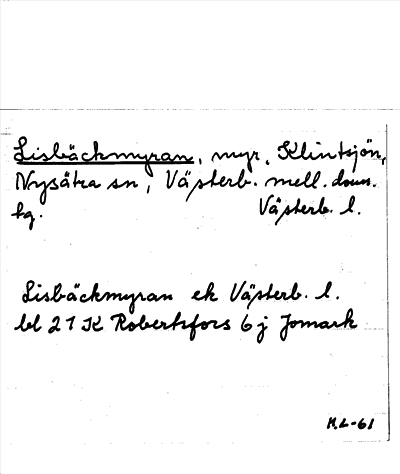 Lisbäckmyran, myr, Klintsjön,
Nysätra sn, Västerb. mell. doms.
hg. Västerb. l.
Lisbäckmyran ek Västerb. l.
bl 21 K Robertsfors 6 j Jomark
M.L-61